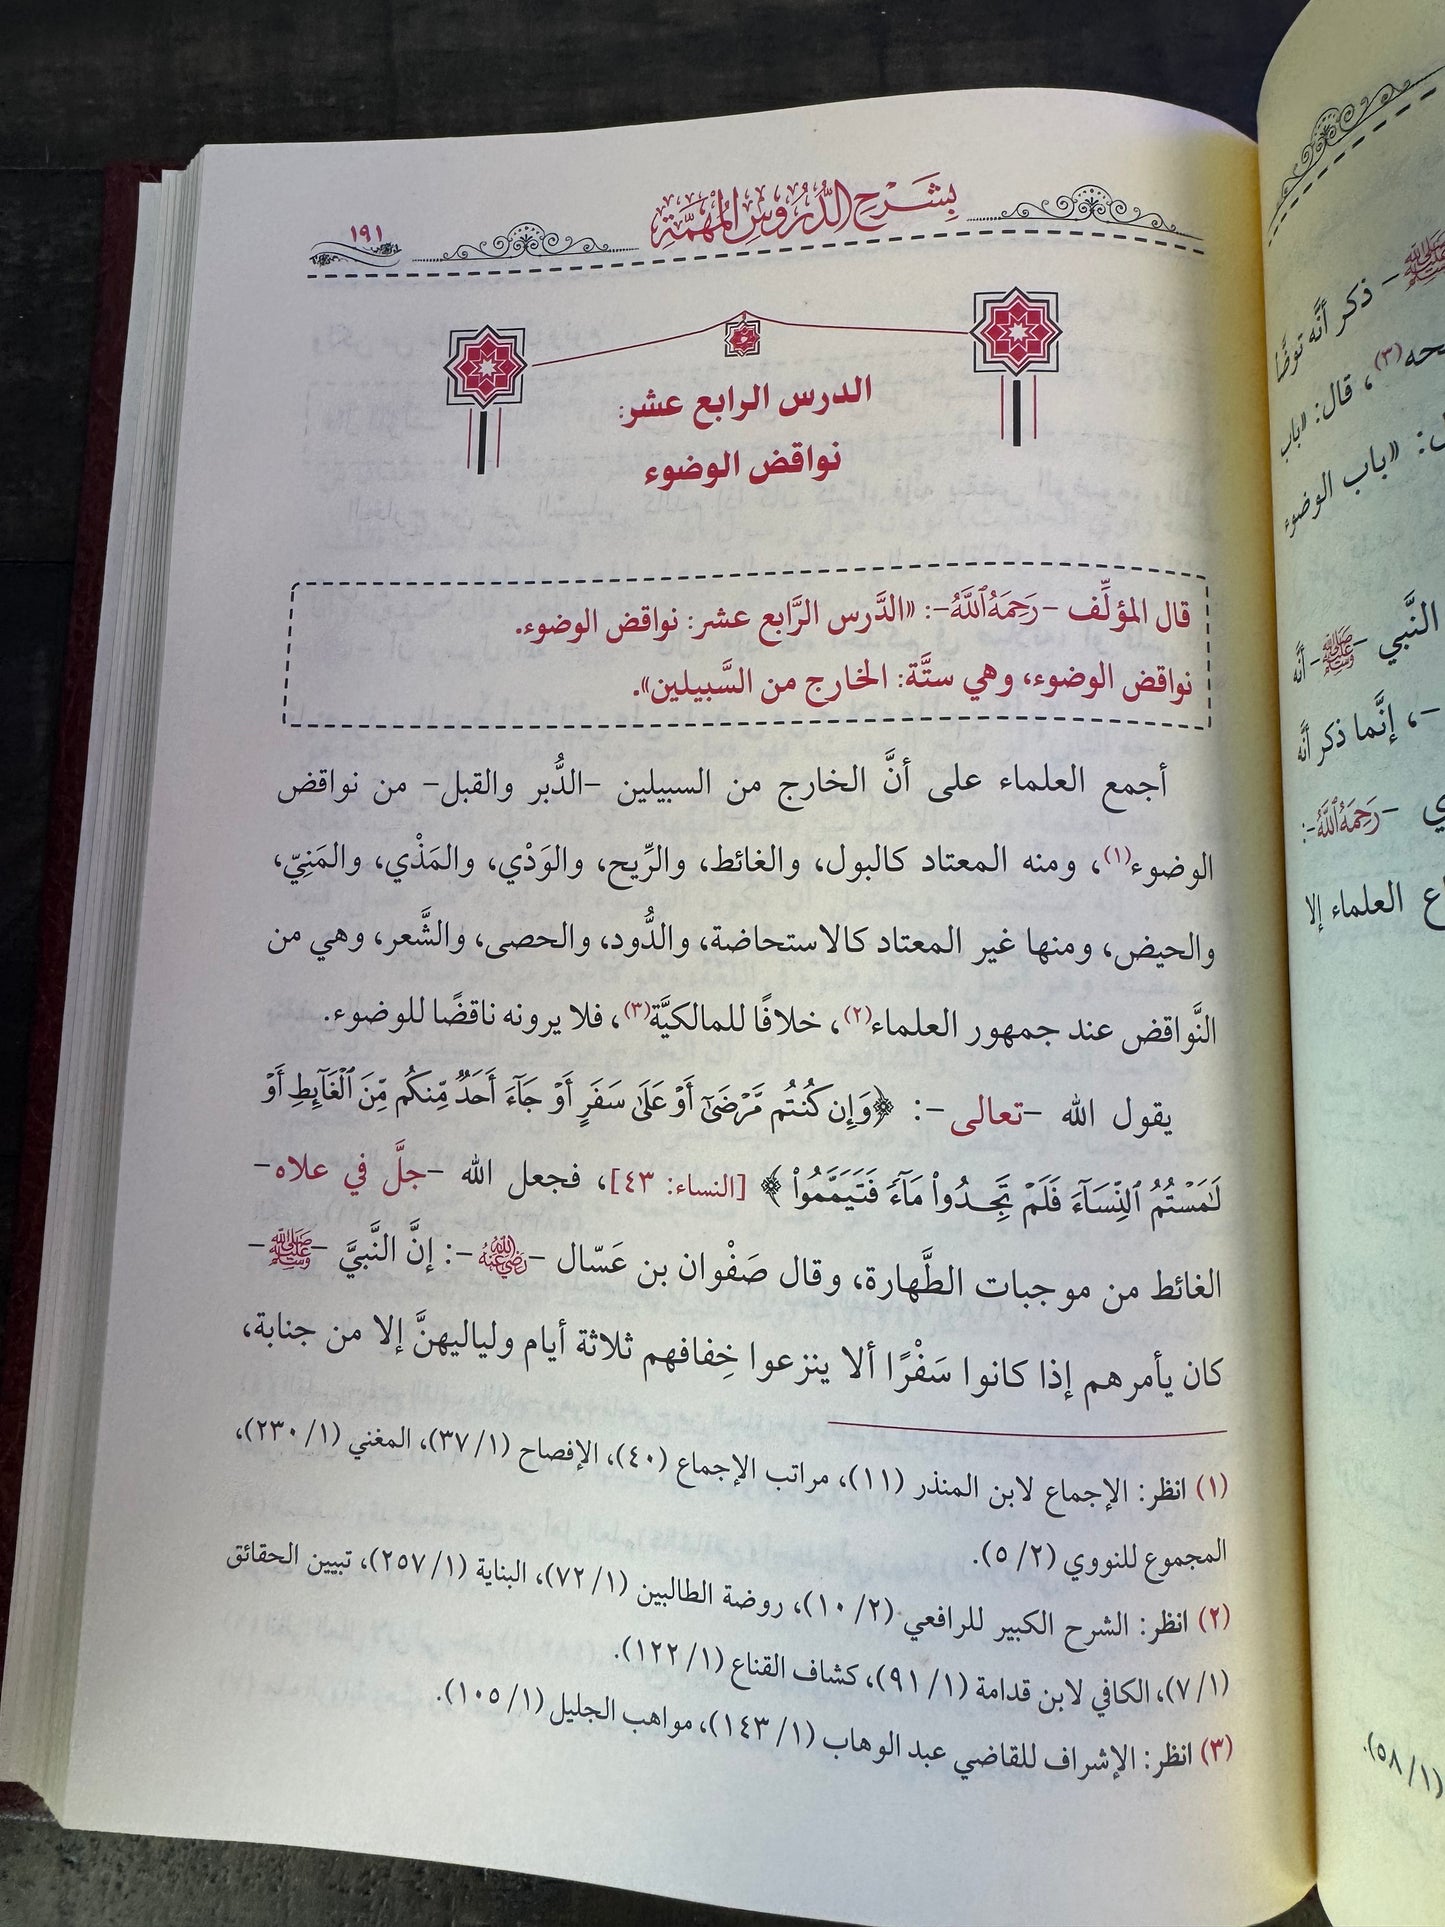 بشرح الدروس المهمة
١٩١
الدرس الرابع عشر:
نواقض الوضوء
قال المؤلِّف -رَحِمَهُ ٱللَّهُ-: «الدَّرس الرَّابع عشر: نواقض الوضوء.
نواقض الوضوء، وهي ستَّة: الخارج من السَّبيلين».
أجمع العلماء على أنَّ الخارج من السبيلين -الدُّبر والقبل- من نواقض
الوضوء(١)، ومنه المعتاد كالبول، والغائط، والرِّيح، والوَدْي، والمَذْي، والمَنِيّ،
والحيض، ومنها غير المعتاد كالاستحاضة، والدُّود، والحصى، والشَّعر، وهي من
النَّواقض عند جمهور العلماء(٢)، خلافًا للمالكيَّة(٣)، فلا يرونه ناقضًا للوضوء.
يقول الله -تعالى-: ﴿وَإِن كُنتُم مَّرْضَىٰٓ أَوْ عَلَىٰ سَفَرٍ أَوْ جَآءَ أَحَدٌ مِّنكُم مِّنَ ٱلْغَآئِطِ أَوْ
لَٰمَسْتُمُ ٱلنِّسَآءَ فَلَمْ تَجِدُوا۟ مَآءً فَتَيَمَّمُوا۟﴾ [النساء: ٤٣]، فجعل الله -جلَّ في علاه-
الغائط من موجبات الطَّهارة، وقال صَفْوان بن عَسّال -رَضِيَ اللَّهُ عَنْهُ-: إنَّ النَّبيَّ -ﷺ-
كان يأمرهم إذا كانوا سَفْرًا ألا ينزعوا خِفافهم ثلاثة أيام ولياليهنَّ إلا من جنابة،
(١) انظر: الإجماع لابن المنذر (١١)، مراتب الإجماع (٤٠)، الإفصاح (١/ ٣٧)، المغني (١/ ٢٣٠)،
المجموع للنووي (٢/ ٥).
(٢) انظر: الشرح الكبير للرافعي (٢/ ١٠)، روضة الطالبين (١/ ٧٢)، البناية (١/ ٢٥٧)، تبيين الحقائق
(١/ ٧)، الكافي لابن قدامة (١/ ٩١)، كشاف القناع (١/ ١٢٢).
(٣) انظر: الإشراف للقاضي عبد الوهاب (١/ ١٤٣)، مواهب الجليل (١/ ١٠٥).
ﷺ- ذكر أنَّه توضَّأ
(٣)، قال: «باب
: «باب الوضوء
النَّبي -ﷺ- أنَّه
-، إنَّما ذكر أنَّه
-رَحِمَهُ ٱللَّهُ-:
العلماء إلا
(١/ ٥٨).